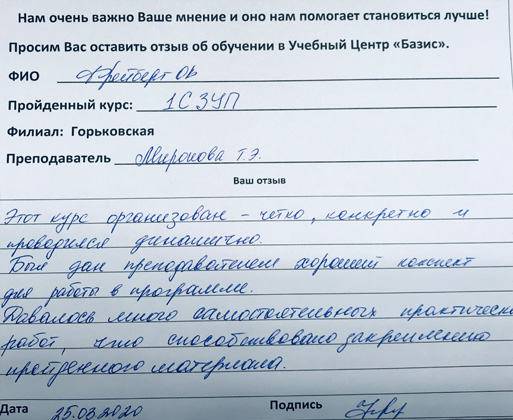 Нам очень важно Ваше мнение и оно нам помогает становиться лучше!
Просим Вас оставить отзыв об обучении в Учебный Центр «Базис».
ФИО Фрейберт ОВ
Пройденный курс: 1С ЗУП
Филиал: Горьковская
Преподаватель Миронова Т.Э.
Ваш отзыв
Этот курс организован - четко, конкретно и
проводился динамично.
Был дан преподавателем хороший конспект
для работы в программе.
Давалось много самостоятельных практическ
работ, что способствовало закреплению
пройденного материала.
Дата 25.03.2020 Подпись